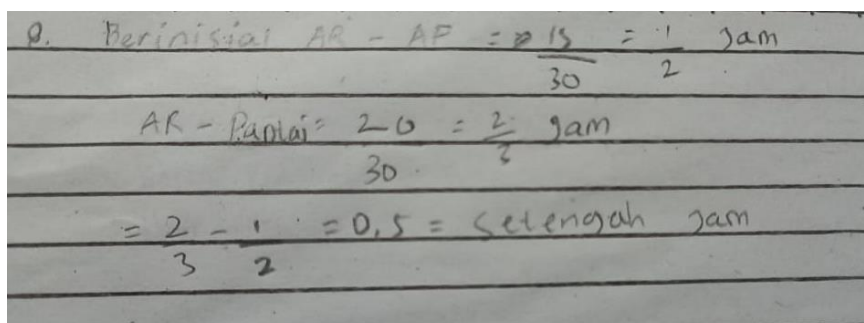 8. Berinisial AR - AP = 15/30 = 1/2 Jam
AR - Pantai = 20/30 = 2/3 Jam
= 2/3 - 1/2 = 0,5 = Setengah Jam